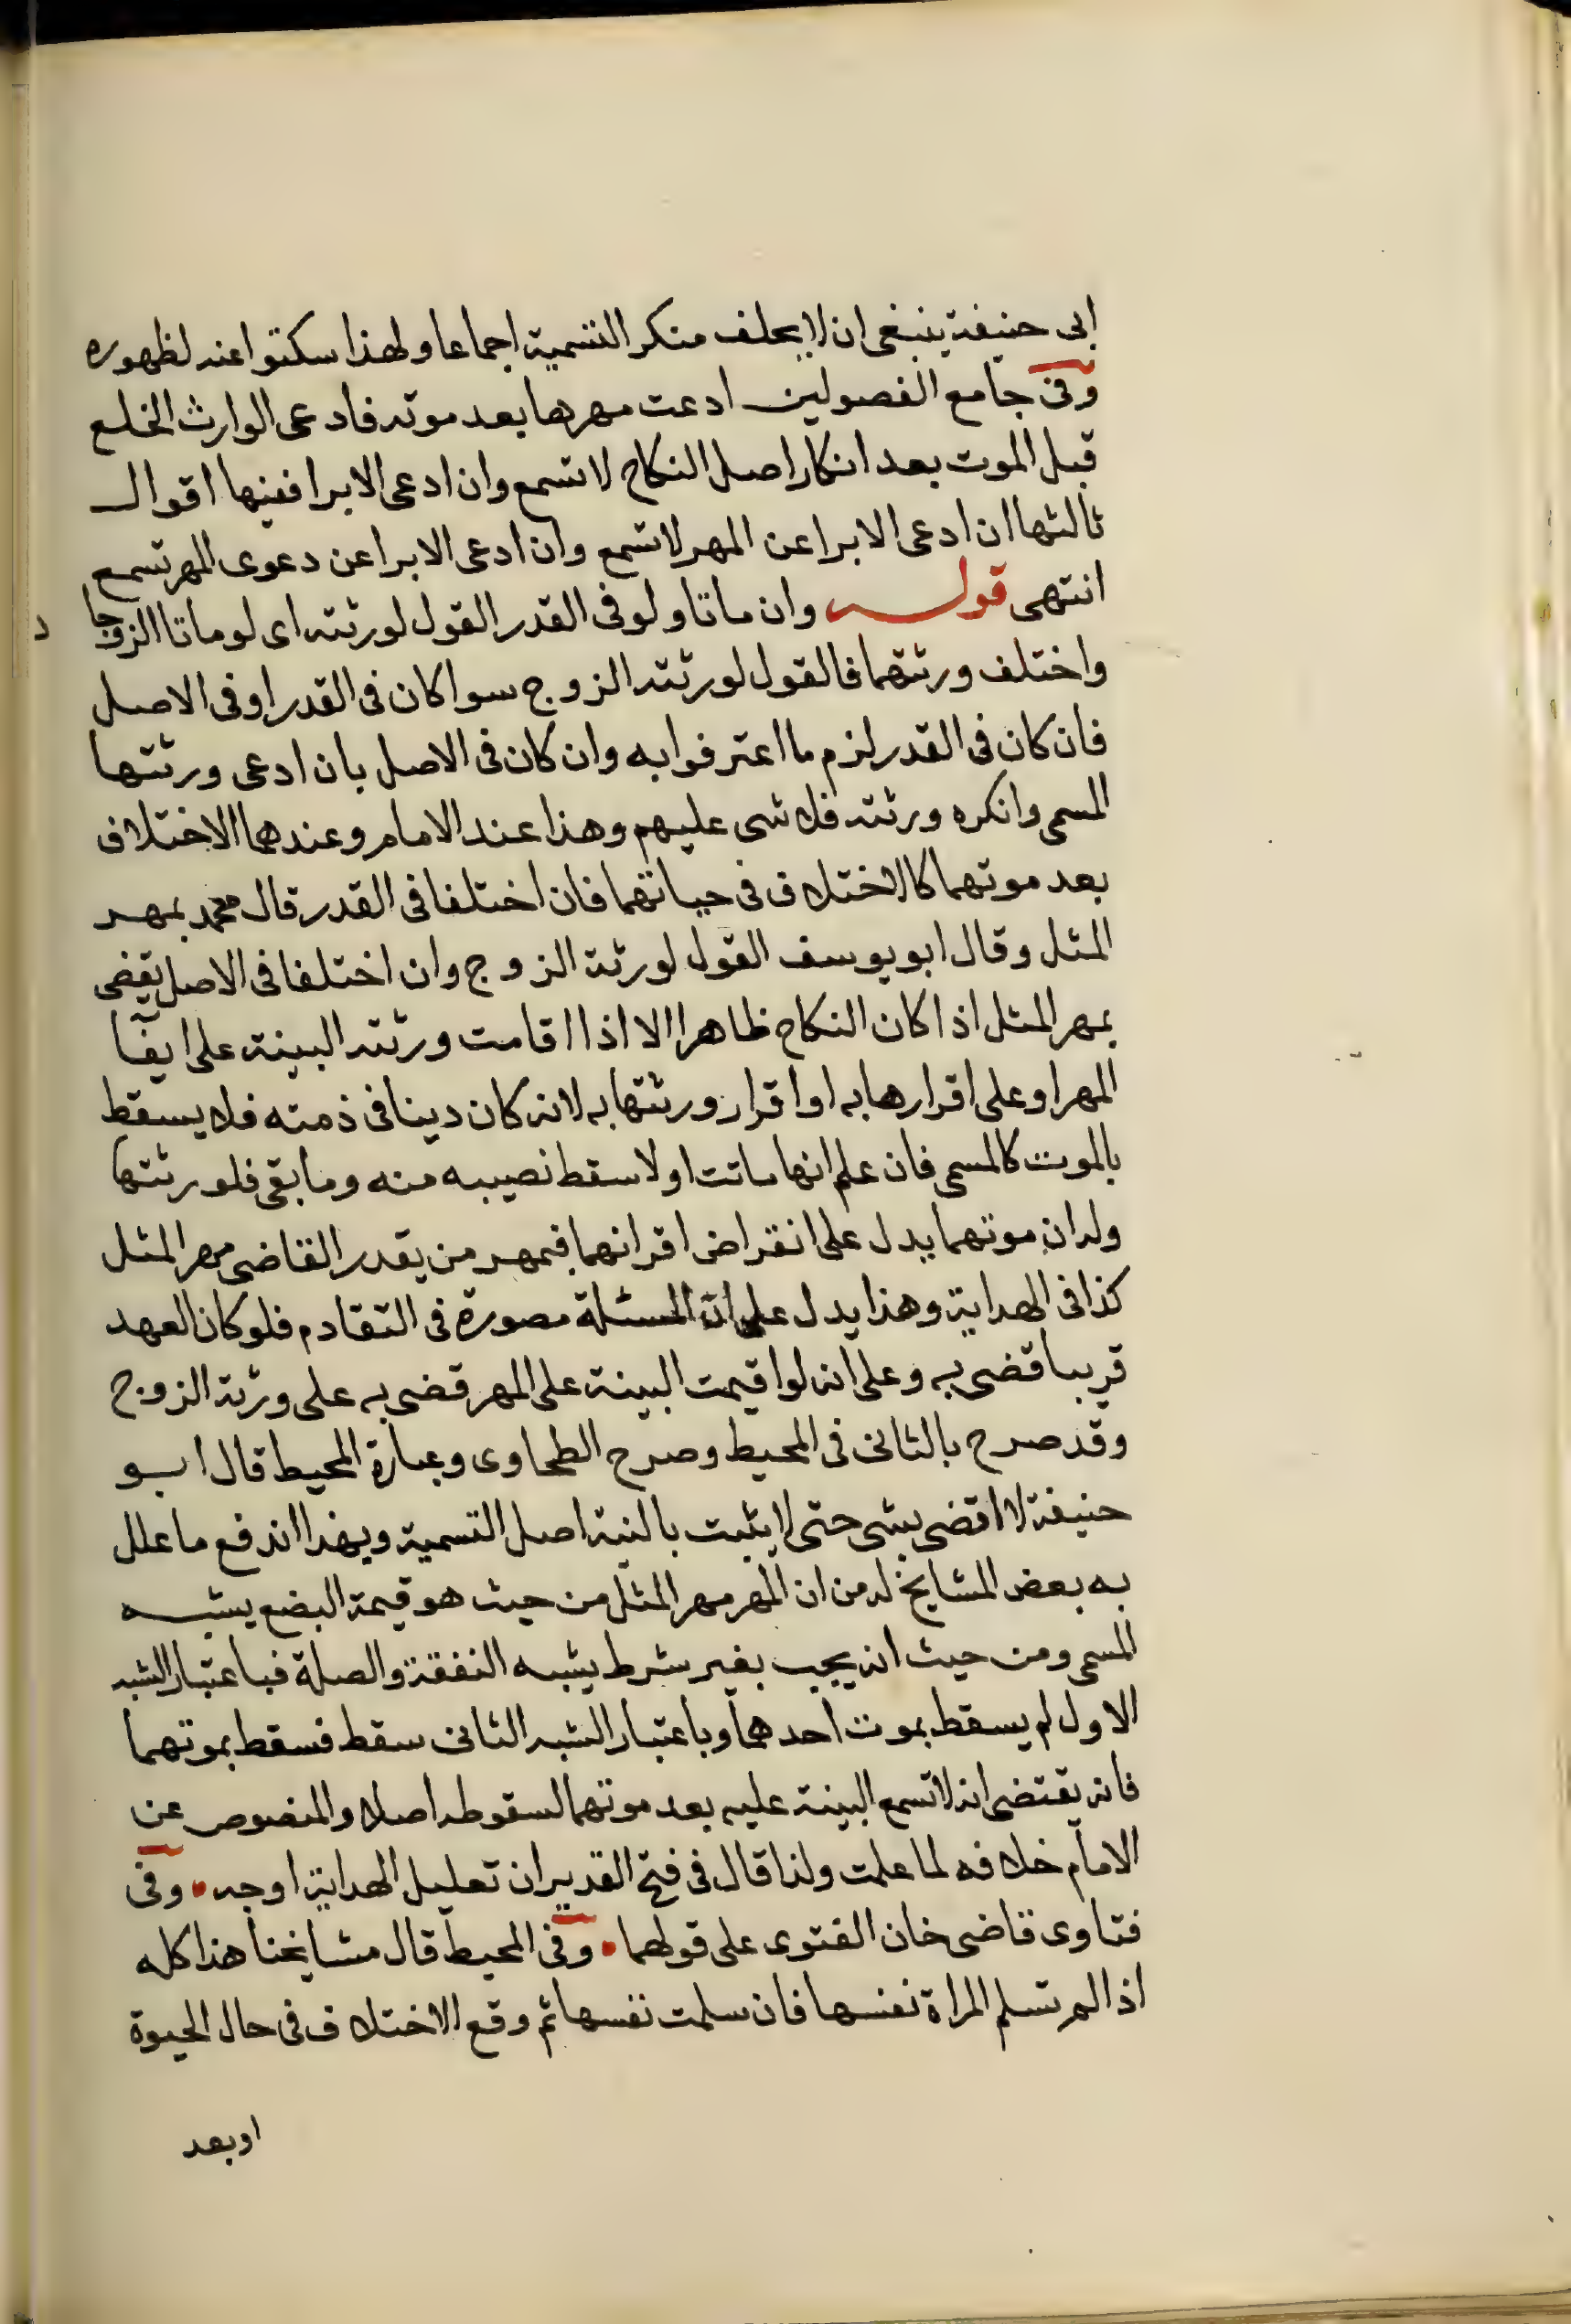 ابى حنيفة ينبغى ان لا يحلف منكر التسمية اجماعا ولهذا سكتوا عنه لظهوره
وفى جامع الفصولين ادعت مهرها بعد موته فادعى الوارث الخلع
قبل الموت بعد انكار اصل النكاح لا تسمع وان ادعى الابرا ففيها اقوال
ثالثها ان ادعى الابرا عن المهر لا تسمع وان ادعى الابرا عن دعوى المهر تسمع
انتهى قوله وان ماتا ولو فى القدر القول لورثته اى لو ماتا الزوجا
د
واختلف ورثتهما فالقول لورثته الزوج سوا كان فى القدر او فى الاصل
فان كان فى القدر لزم ما اعترفوا به وان كان فى الاصل بان ادعى ورثتها
المسمى وانكره ورثته فلا شى عليهم وهذا عند الامام وعندهما الاختلاف
بعد موتهما كالاختلاف فى حياتهما فان اختلفا فى القدر قال محمد بمهر
المثل وقال ابو يوسف القول لورثة الزوج وان اختلفا فى الاصل يقضى
بمهر المثل اذا كان النكاح ظاهرا الا اذا اقامت ورثته البينة على ايفآ
المهر او على اقرارها به او اقرار ورثتها به لانه كان دينا فى ذمته فلا يسقط
بالموت كالمسمى فان علم انها ماتت اولا سقط نصيبه منه وما بقى فلورثتها
وله ان موتهما يدل على انقراض اقرانهما فمهر من يقدر القاضى مهر المثل
كذا فى الهداية وهذا يدل على ان المسئلة مصورة فى التقادم فلو كان العهد
قريبا قضى به وعلى انه لو اقيمت البينة على المهر قضى به على ورثة الزوج
وقد صرح بالثانى فى المحيط وصرح الطحاوى وعبارة المحيط قال ابو
حنيفة لا اقضى بشى حتى لا يثبت بالنية اصل التسمية وبهذا اندفع ما علل
به بعض المشايخ له من ان المهر مهر المثل من حيث هو قيمة البضع يشبه
المسمى ومن حيث انه يجب بغير شرط يشبه النفقة والصلة فباعتبار الشبه
الاول لم يسقط بموت احدهما وباعتبار الشبه الثانى سقط فسقط بموتهما
فانه يقتضى انه لا تسمع البينة عليه بعد موتهما لسقوطه اصلا والمنصوص عن
الامام خلافه لما علمت ولذا قال فى فتح القدير ان تعليل الهداية اوجه • وفى
فتاوى قاضى خان الفتوى على قولهما • وفى المحيط قال مشايخنا هذا كله
اذا لم تسلم المراة نفسها فان سلمت نفسها ثم وقع الاختلاف فى حال الحيوة
او بعد